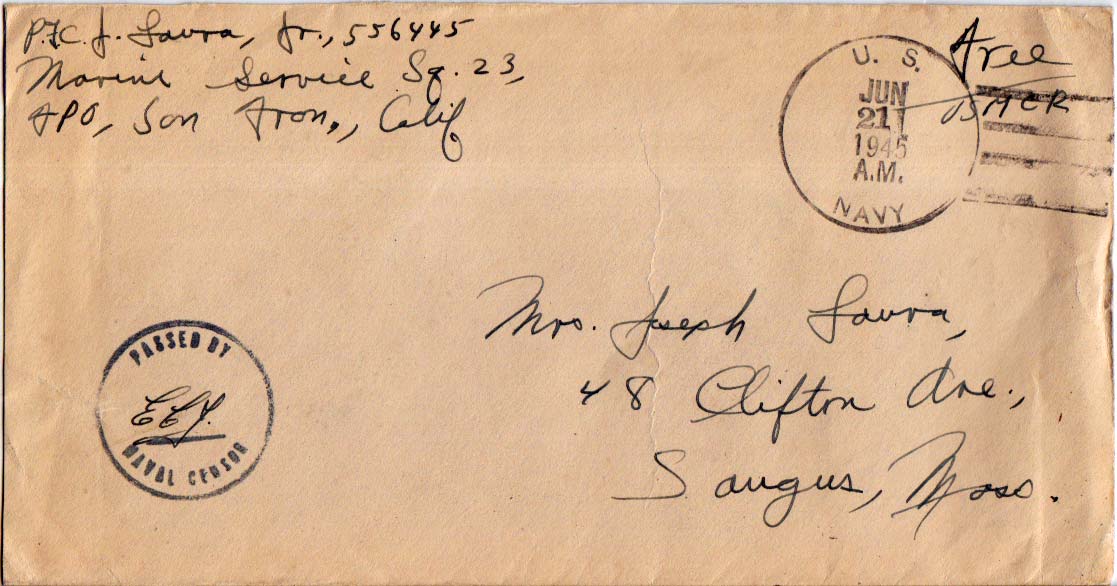 P.F.C. J. Laura, Jr., 556445
Marine Service Sq. 23,
FPO, San Fran., Calif
Free
USMCR
U. S.
JUN
21
1945
A.M.
NAVY
Mrs. Joseph Laura,
48 Clifton Ave.,
Saugus, Mass.
PASSED BY
NAVAL CENSOR